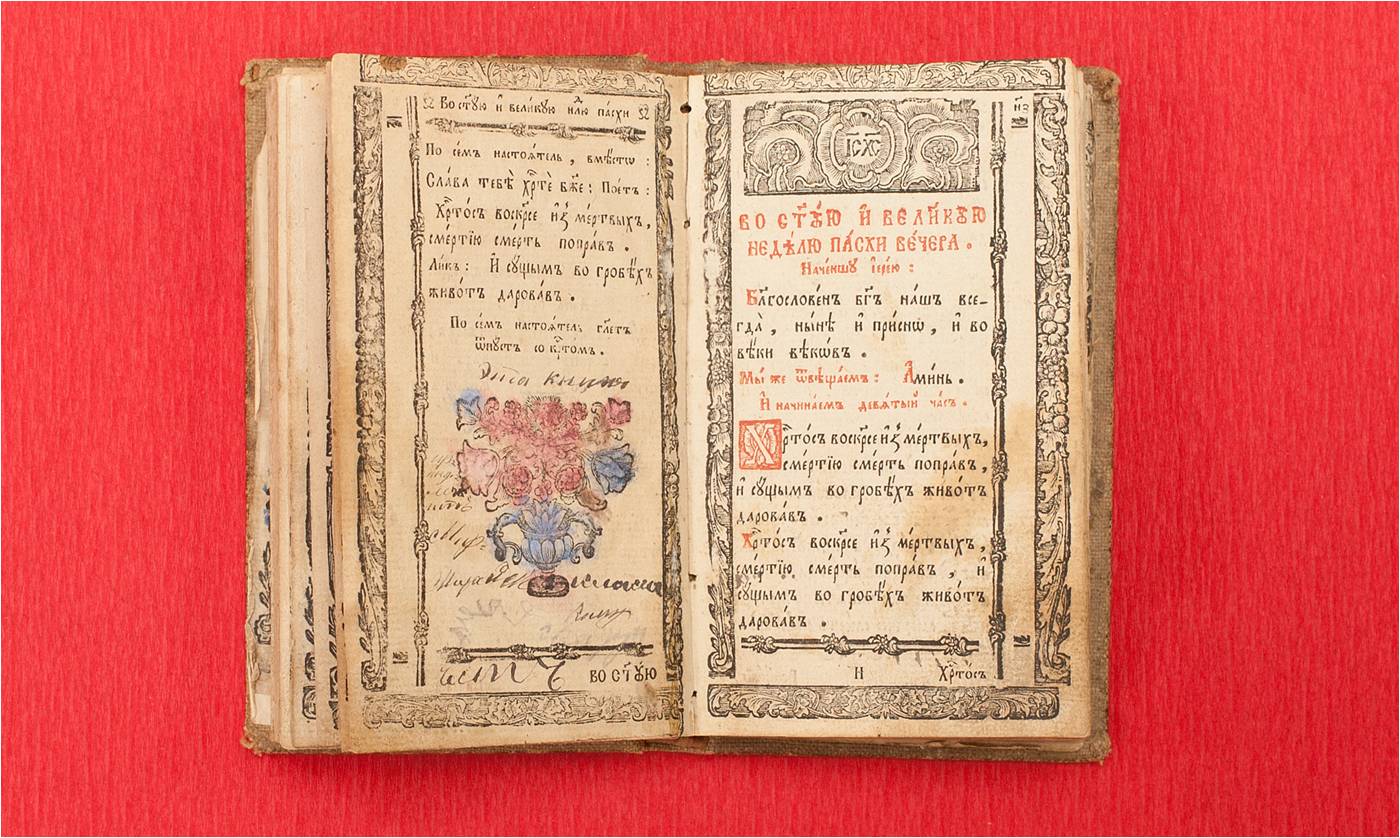 Во ст҃ꙋ́ю и҆ вели́кꙋю нлⷣю па́схи
По се́мъ настоѧ́тель, вмѣ́стѡ :
Сла́ва тебѣ̀ хрⷭ҇тѐ бж҃е: Пое́тъ :
Хрⷭ҇то́съ воскр҃се и҆з̾ ме́ртвыхъ,
сме́ртїю сме́рть попра́въ .
Ли́къ : И҆ сꙋ́щымъ во гробѣ́хъ
живо́тъ дарова́въ .
По се́мъ настоѧ́тель гл҃етъ
ѿпꙋ́стъ со крⷭ҇то́мъ .
Эта книга
есть
во ст҃ꙋ́ю
І҆С ХС
во ст҃ꙋ́ю и҆ вели́кꙋю
недѣ́лю па́схи ве́чера .
Наче́ншꙋ і҆ере́ю :
Бл҃гослове́нъ бг҃ъ на́шъ все-
гда̀, ны́нѣ и҆ при́снѡ, и҆ во
вѣ́ки вѣкѡ́въ .
Мы́ же ѿвѣща́емъ : А҆ми́нь .
И҆ начина́емъ девѧ́тый ча́съ .
Хрⷭ҇то́съ воскр҃се и҆з̾ ме́ртвыхъ,
сме́ртїю сме́рть попра́въ,
и҆ сꙋ́щымъ во гробѣ́хъ живо́тъ
дарова́въ .
Хрⷭ҇то́съ воскр҃се и҆з̾ ме́ртвыхъ,
сме́ртїю сме́рть попра́въ, и҆
сꙋ́щымъ во гробѣ́хъ живо́тъ
дарова́въ .
Н Хрⷭ҇то́съ